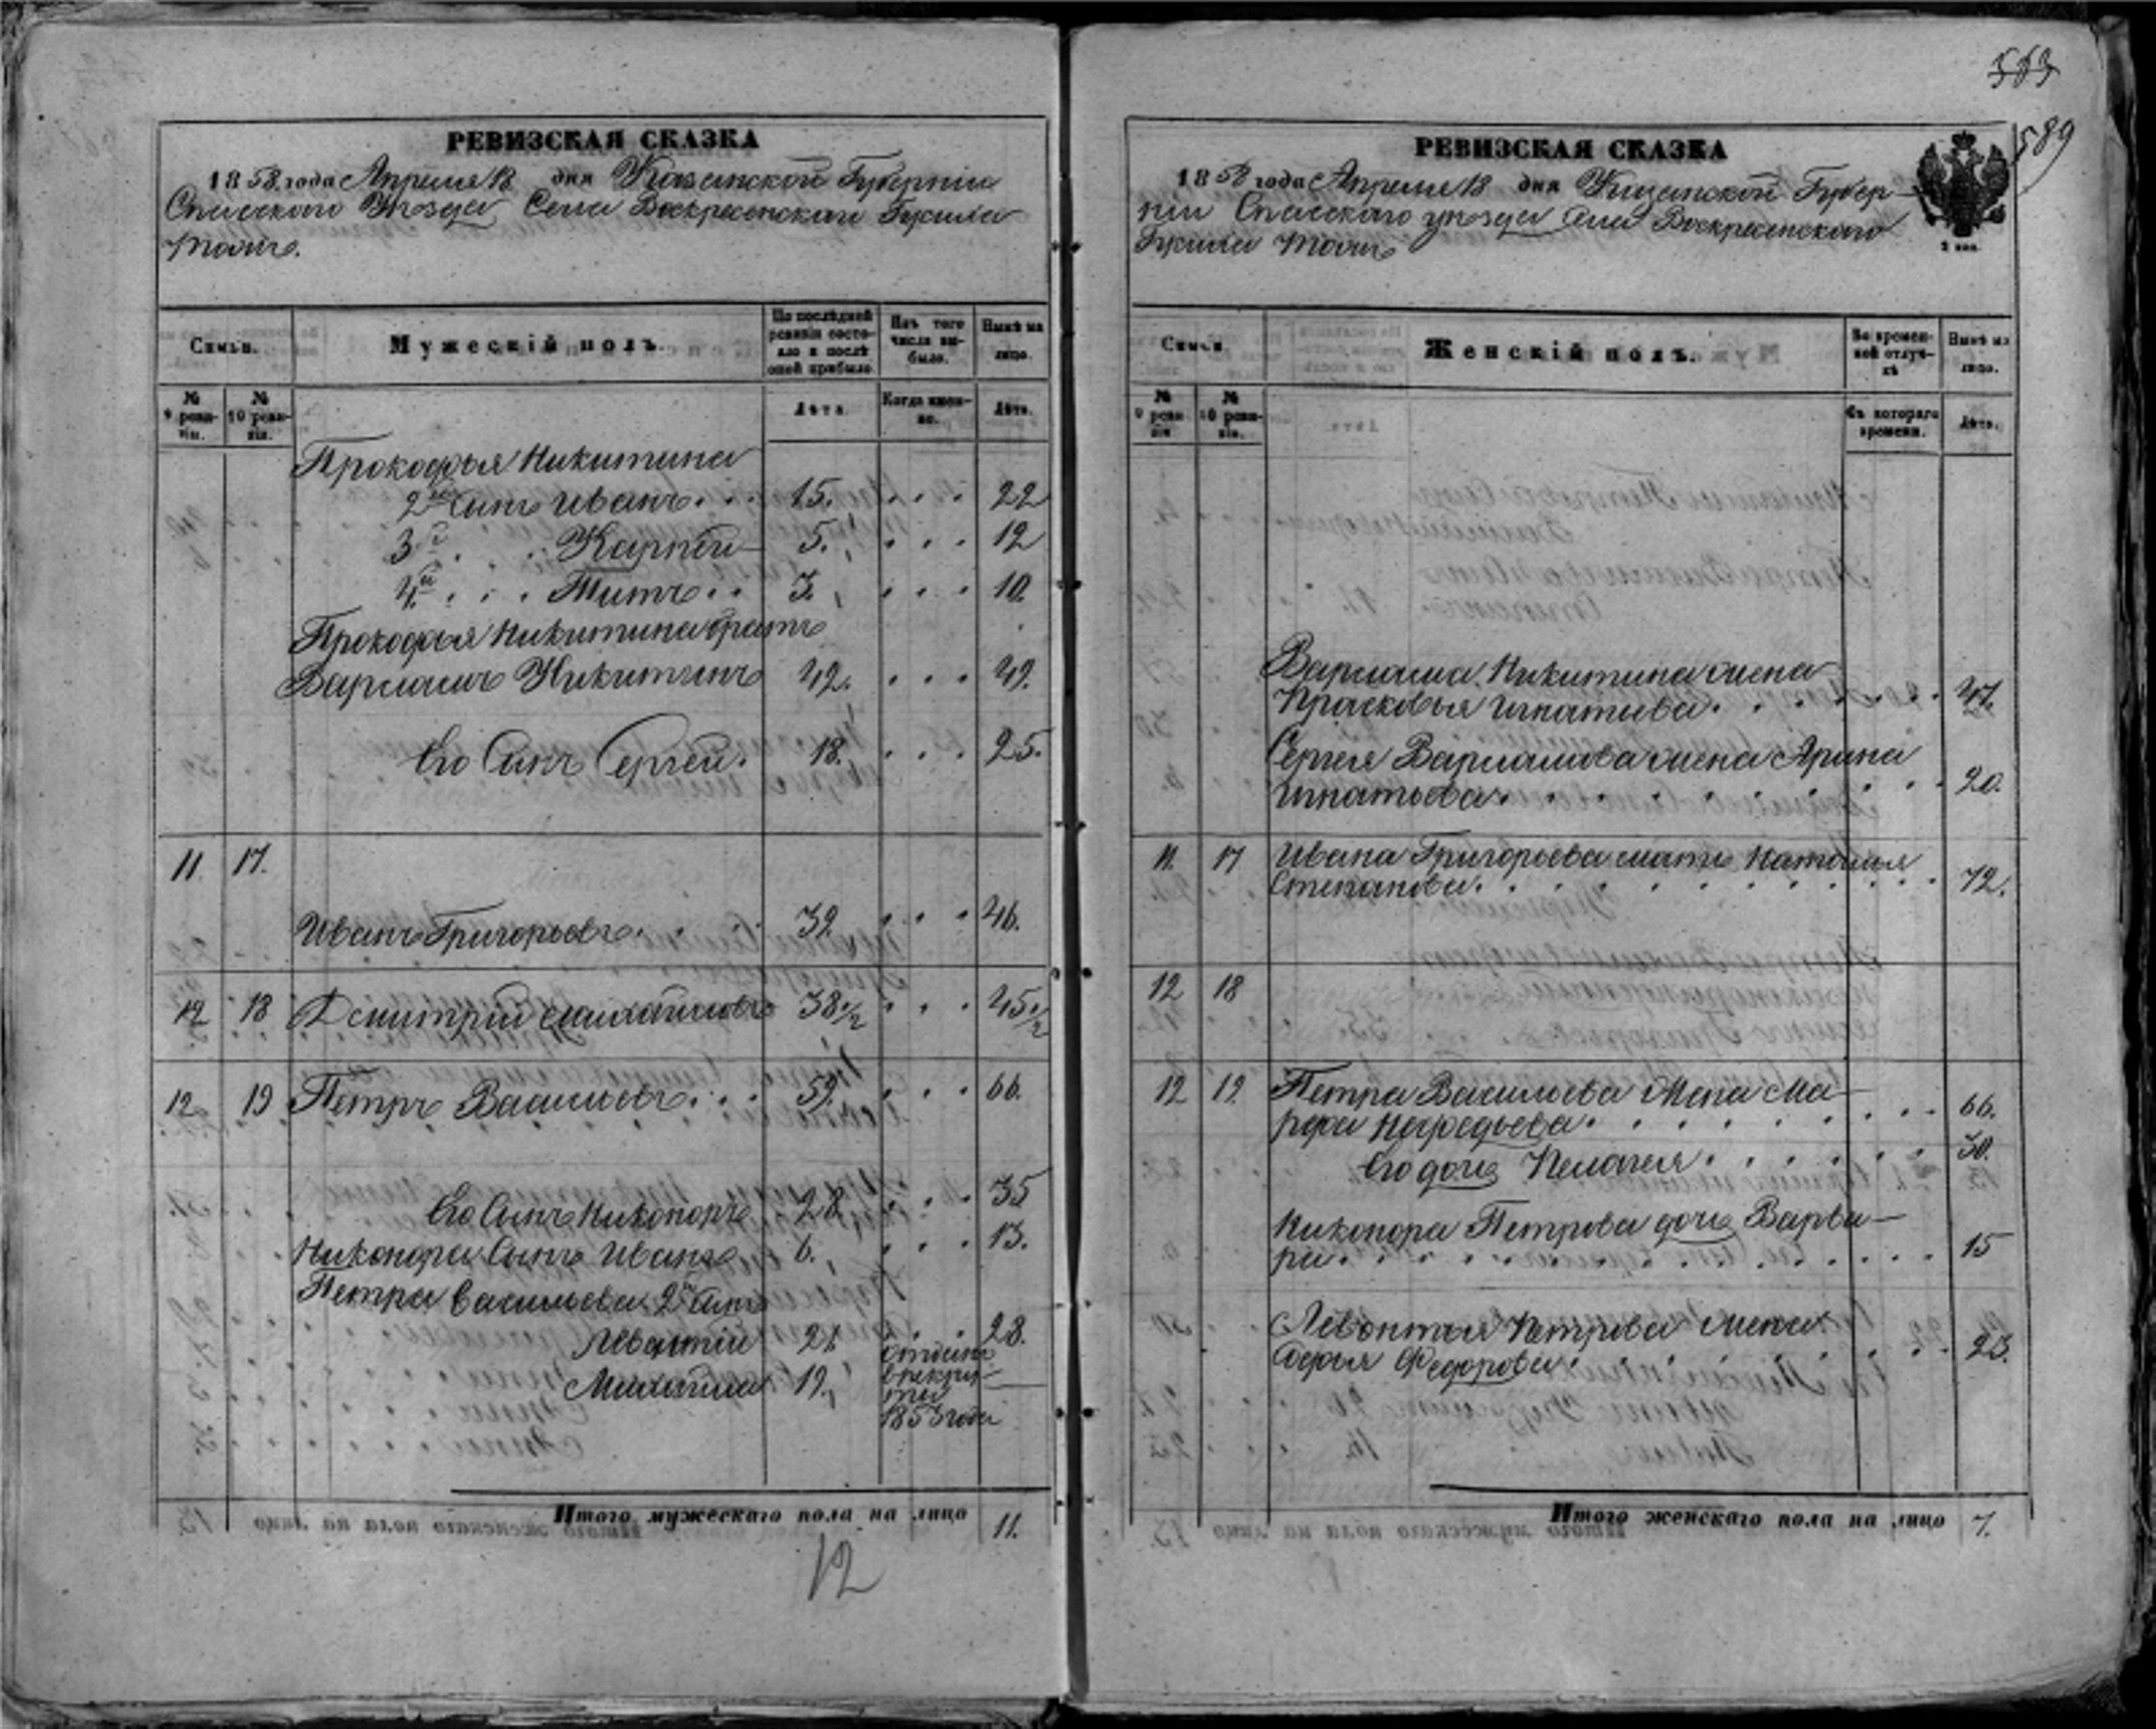 РЕВИЗСКАЯ СКАЗКА
1858 года Апреля 18 дня Казанской Губерніи
Спасского Уѣзда Села Воскресенскаго
тожъ.
Семьи.
Мужескій полъ.
По послѣдней ревизіи состояло и послѣ оной прибыло
Изъ того числа выбыло.
Нынѣ на лицо.
№ 9 ревизіи.
№ 10 ревизіи.
Лѣта.
Когда именно.
Лѣта.
Прокофья Никитина
2й Сынъ Иванъ . . 15. . . . 22
3й . . Карпъ 5. . . . 12
4й . . . Титъ . . 3. . . . 10.
Прокофья Никитина братъ
Варламъ Никитинъ 42. . . . 49.
Его Сынъ Сергей. 18. . . . 25.
11. 17.
Иванъ Григорьевъ . . 39. . . . 46.
12 18 Дмитрій Михайловъ 38 1/2 . . . 45 1/2
12 19 Петръ Васильевъ . . . 59. . . . 66.
Его Сынъ Никоноръ 28 . . . 35
Никонора Сынъ Иванъ 6. . . . 13.
Петра Васильева 2й Сынъ
Левонтій 21. . . . 28.
19.
въ рекруты
1853 года
Итого мужескаго пола на лицо 11.
12
563
589
РЕВИЗСКАЯ СКАЗКА
1858 года Апреля 18 дня Казанской Губерніи Спасскаго уѣзда Села Воскресенскаго
тожъ
2 коп.
Семьи.
Женскій полъ.
Во временной отлучкѣ
Нынѣ на лицо.
№ 9 ревизіи
№ 10 ревизіи.
Съ котораго времени.
Лѣта.
Варлама Никитина жена
Прасковья Игнатьева . . . 47.
Сергея Варламова жена Арина
Игнатьева . . . 20.
11. 17 Ивана Григорьева мать Наталья
Степанова . . . 72.
12 18
12 19 Петра Васильева Жена Ма-
рфа . . . 66.
Его дочь Пелагея . . . 30.
Никонора Петрова дочь Варва-
ра . . . 15
Левонтья Петрова Жена
Федорова . . . 23.
Итого женскаго пола на лицо 7.